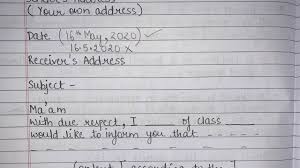 Sender's Address
(Your own address)
Date (16th May, 2020) ✓
16.5.2020 ×
Receiver's Address
Subject -
Ma'am
With due respect, I ____ of class ____
would like to inform you that - - - -
(content) according to the